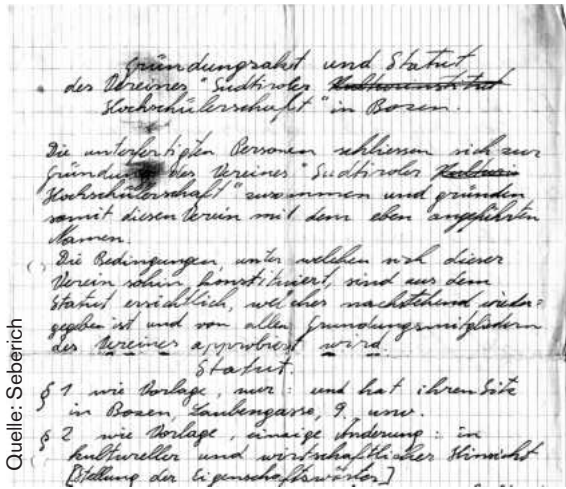 Gründungsakt und Statut
des Vereines "Südtiroler Kulturinstitut
Hochschülerschaft" in Bozen.
Die unterfertigten Personen schliessen sich zur
Gründung des Vereines "Südtiroler
Hochschülerschaft" zusammen und gründen
somit diesen Verein mit dem eben angeführten
Namen.
Die Bedingungen, unter welchen sich dieser
Verein sohin konstituiert, sind aus dem
Statut ersichtlich, welcher nachstehend wieder-
gegeben ist und von allen Gründungsmitgliedern
des Vereines approbiert wird.
Statut.
§ 1 wie Vorlage, nur: und hat ihren Sitz
in Bozen, Laubengasse, 9. usw.
§ 2 wie Vorlage, einzige Änderung: in
kultureller und wirtschaftlicher Hinsicht
[Stellung der Eigenschaftswörter]
Quelle: Seberich